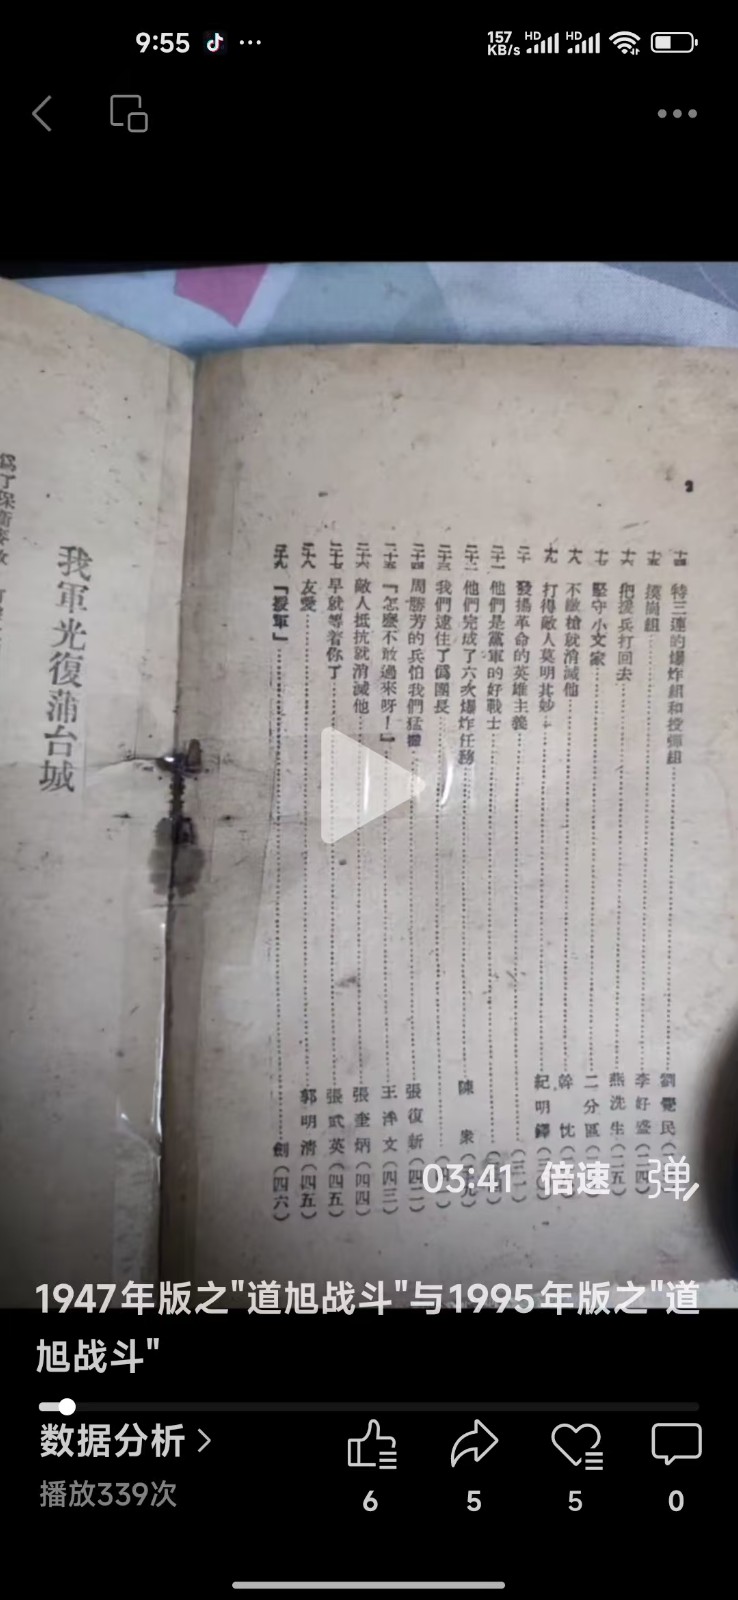 9:55
157 KB/s HD HD
2
十四 特三連的爆炸組和投彈組 劉覺民(
十五 摸崗組 李好盛(二四)
十六 把援兵打回去 燕洗生(二五)
十七 堅守小文家 二分區(
十八 不繳槍就消滅他 幹忱(
十九 打得敵人莫明其妙 紀明鐸(三
二十 發揚革命的英雄主義 (三一)
二十一 他們是黨軍的好戰士
二十二 他們完成了六次爆炸任務 陳衆(
二十三 我們逮住了僞團長
二十四 周勝芳的兵怕我們猛 張復新(四二)
二十五 「怎麼不敢過來呀!」 王洚文(四三)
二十六 敵人抵抗就消滅他 張奎炳(四四)
二十七 早就等着你了 張武英(四五)
二十八 友愛 郭明清(四五)
二十九 「援軍」 劍(四六)
我軍光復蒲台城
爲了保衛麥收
03:41 倍速 弹
1947年版之"道旭战斗"与1995年版之"道
旭战斗"
数据分析
播放339次
6 5 5 0